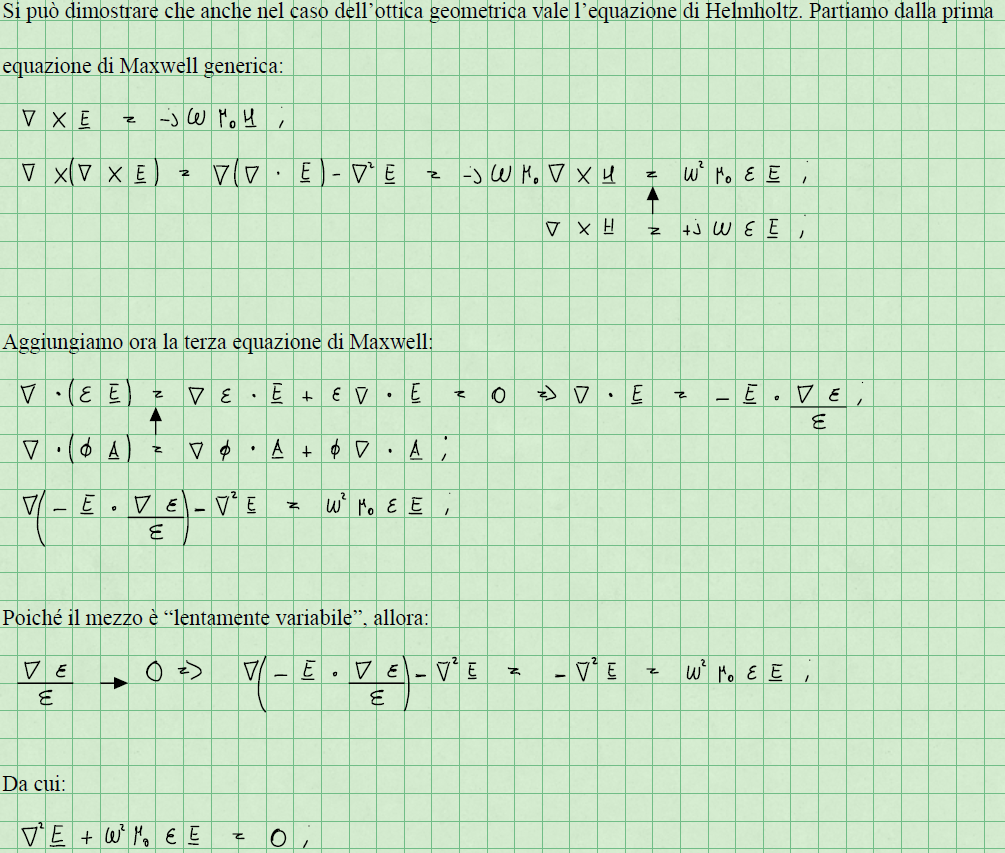 Si può dimostrare che anche nel caso dell'ottica geometrica vale l'equazione di Helmholtz. Partiamo dalla prima
equazione di Maxwell generica:
∇ × E = -jωμ₀H ;
∇ × (∇ × E) = ∇(∇ · E) - ∇²E = -jωμ₀∇ × H = ω²μ₀εE ;
∇ × H = +jωεE ;
Aggiungiamo ora la terza equazione di Maxwell:
∇ · (εE) = ∇ε · E + ε∇ · E = 0 => ∇ · E = -E · ∇ε/ε ;
∇ · (ϕA) = ∇ϕ · A + ϕ∇ · A ;
∇(-E · ∇ε/ε) - ∇²E = ω²μ₀εE ;
Poiché il mezzo è “lentamente variabile”, allora:
∇ε/ε → 0 => ∇(-E · ∇ε/ε) - ∇²E = -∇²E = ω²μ₀εE ;
Da cui:
∇²E + ω²μ₀εE = 0 ;